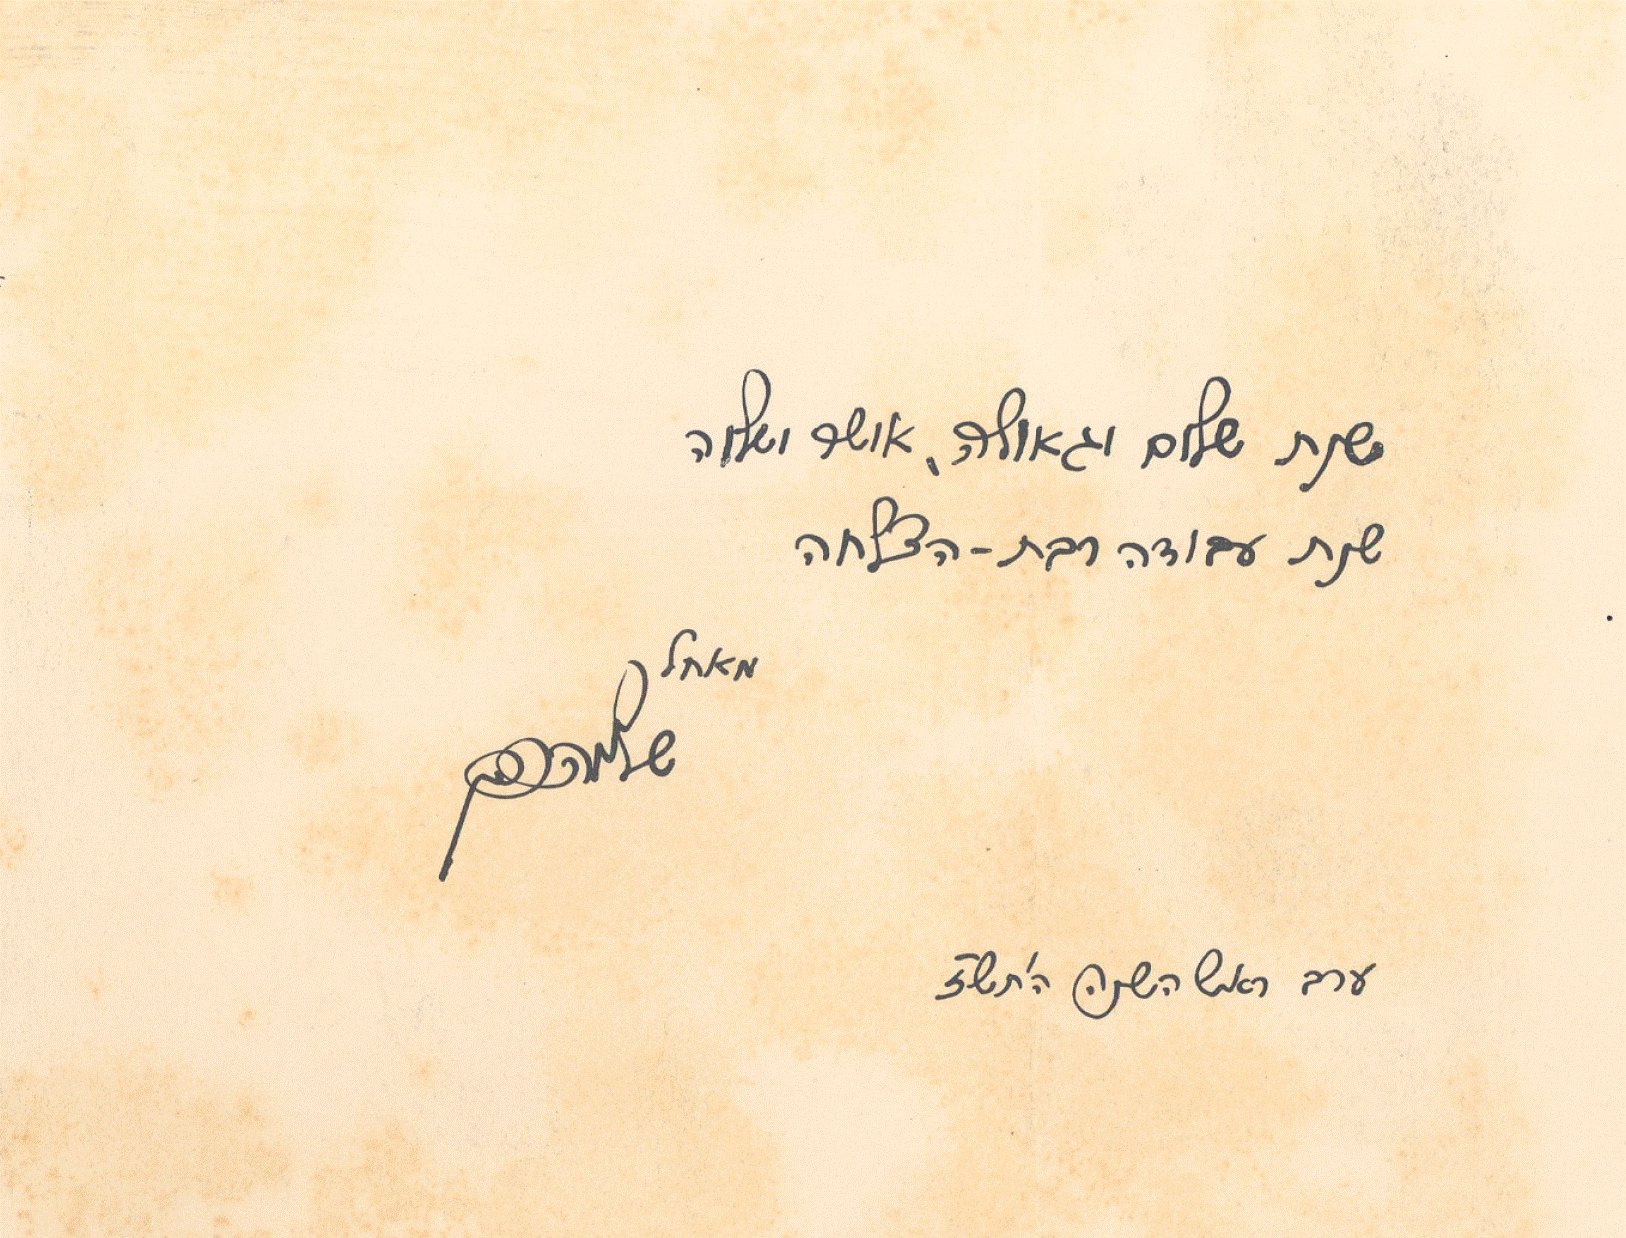 שנת שלום וגאולה, אושר ושלוה
שנת עבודה רבת-הצלחה
מאחל
שלמה
ערב ראש השנה ה'תש"ז